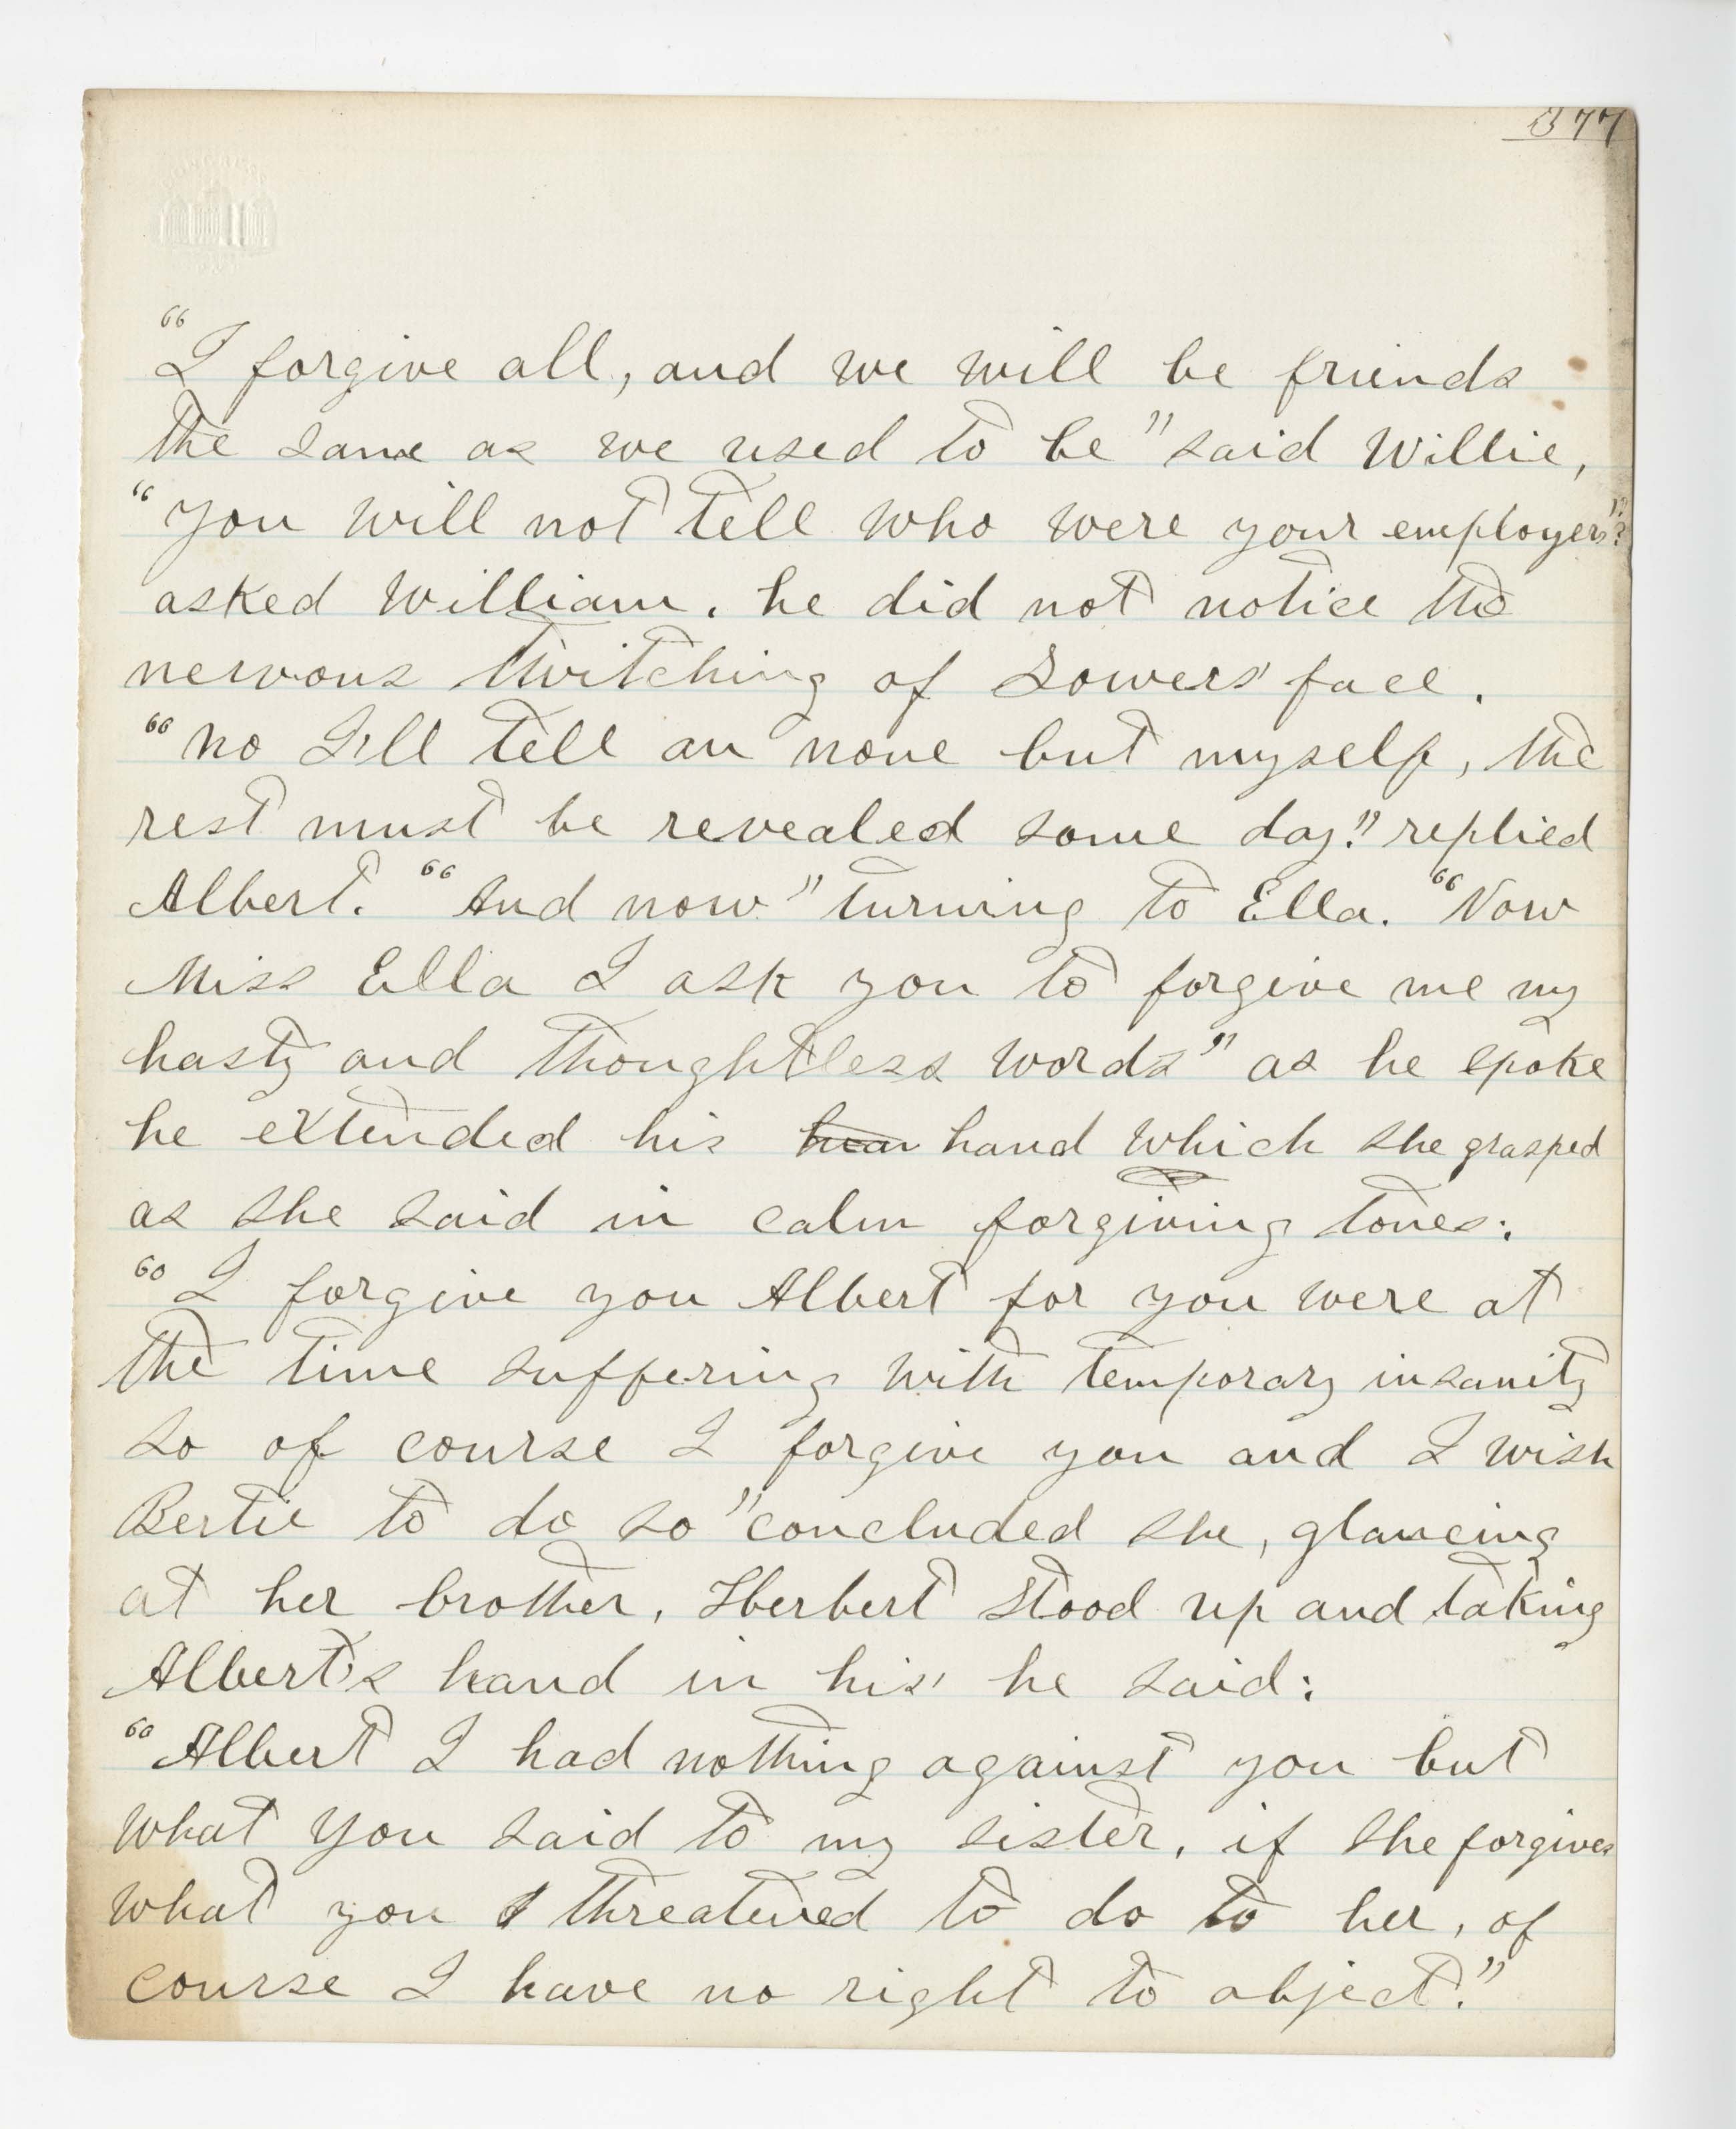 377
"I forgive all, and we will be friends
the same as we used to be" said Willie,
"you will not tell who were your employers"?
asked William. he did not notice the
nervous twitching of Sowers' face.
"no I'll tell on none but myself, the
rest must be revealed some day." replied
Albert. "And now" turning to Ella. "Now
Miss Ella I ask you to forgive me my
hasty and thoughtless words" as he spoke
he extended his hand which she grasped
as she said in calm forgiving tones:
"I forgive you Albert for you were at
the time suffering with temporary insanity
so of course I forgive you and I wish
Bertie to do so" concluded she, glancing
at her brother, Herbert stood up and taking
Albert's hand in his' he said:
"Albert I had nothing against you but
what you said to my sister, if she forgives
what you threatened to do to her, of
course I have no right to object."